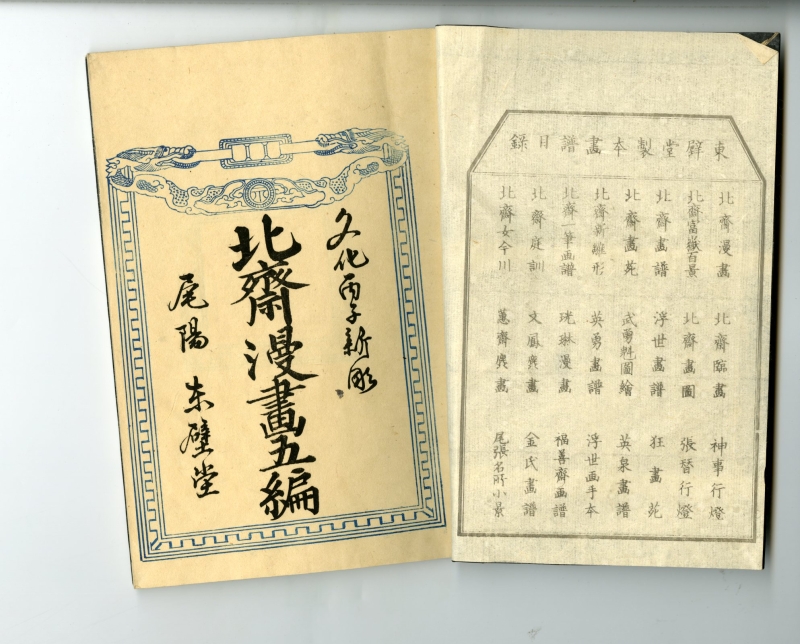 東壁堂製本畫譜目録
北齋漫畫 北齋臨畫 神事行燈
北齋富嶽百景 北齋畫圖 張替行燈
北齋畫譜 浮世畫譜 狂畫苑
北齋畫苑 武勇魁圖繪 英泉畫譜
北齋新雛形 英勇畫譜 浮世画手本
北斎一筆画譜 珖琳漫畫 福善齋画譜
北齋庭訓 文鳳麁畫 金氏畫譜
北齋女今川 蕙齋麁畫 尾張名所小景
文化丙子新彫
北齋漫畫五編
尾陽 東壁堂